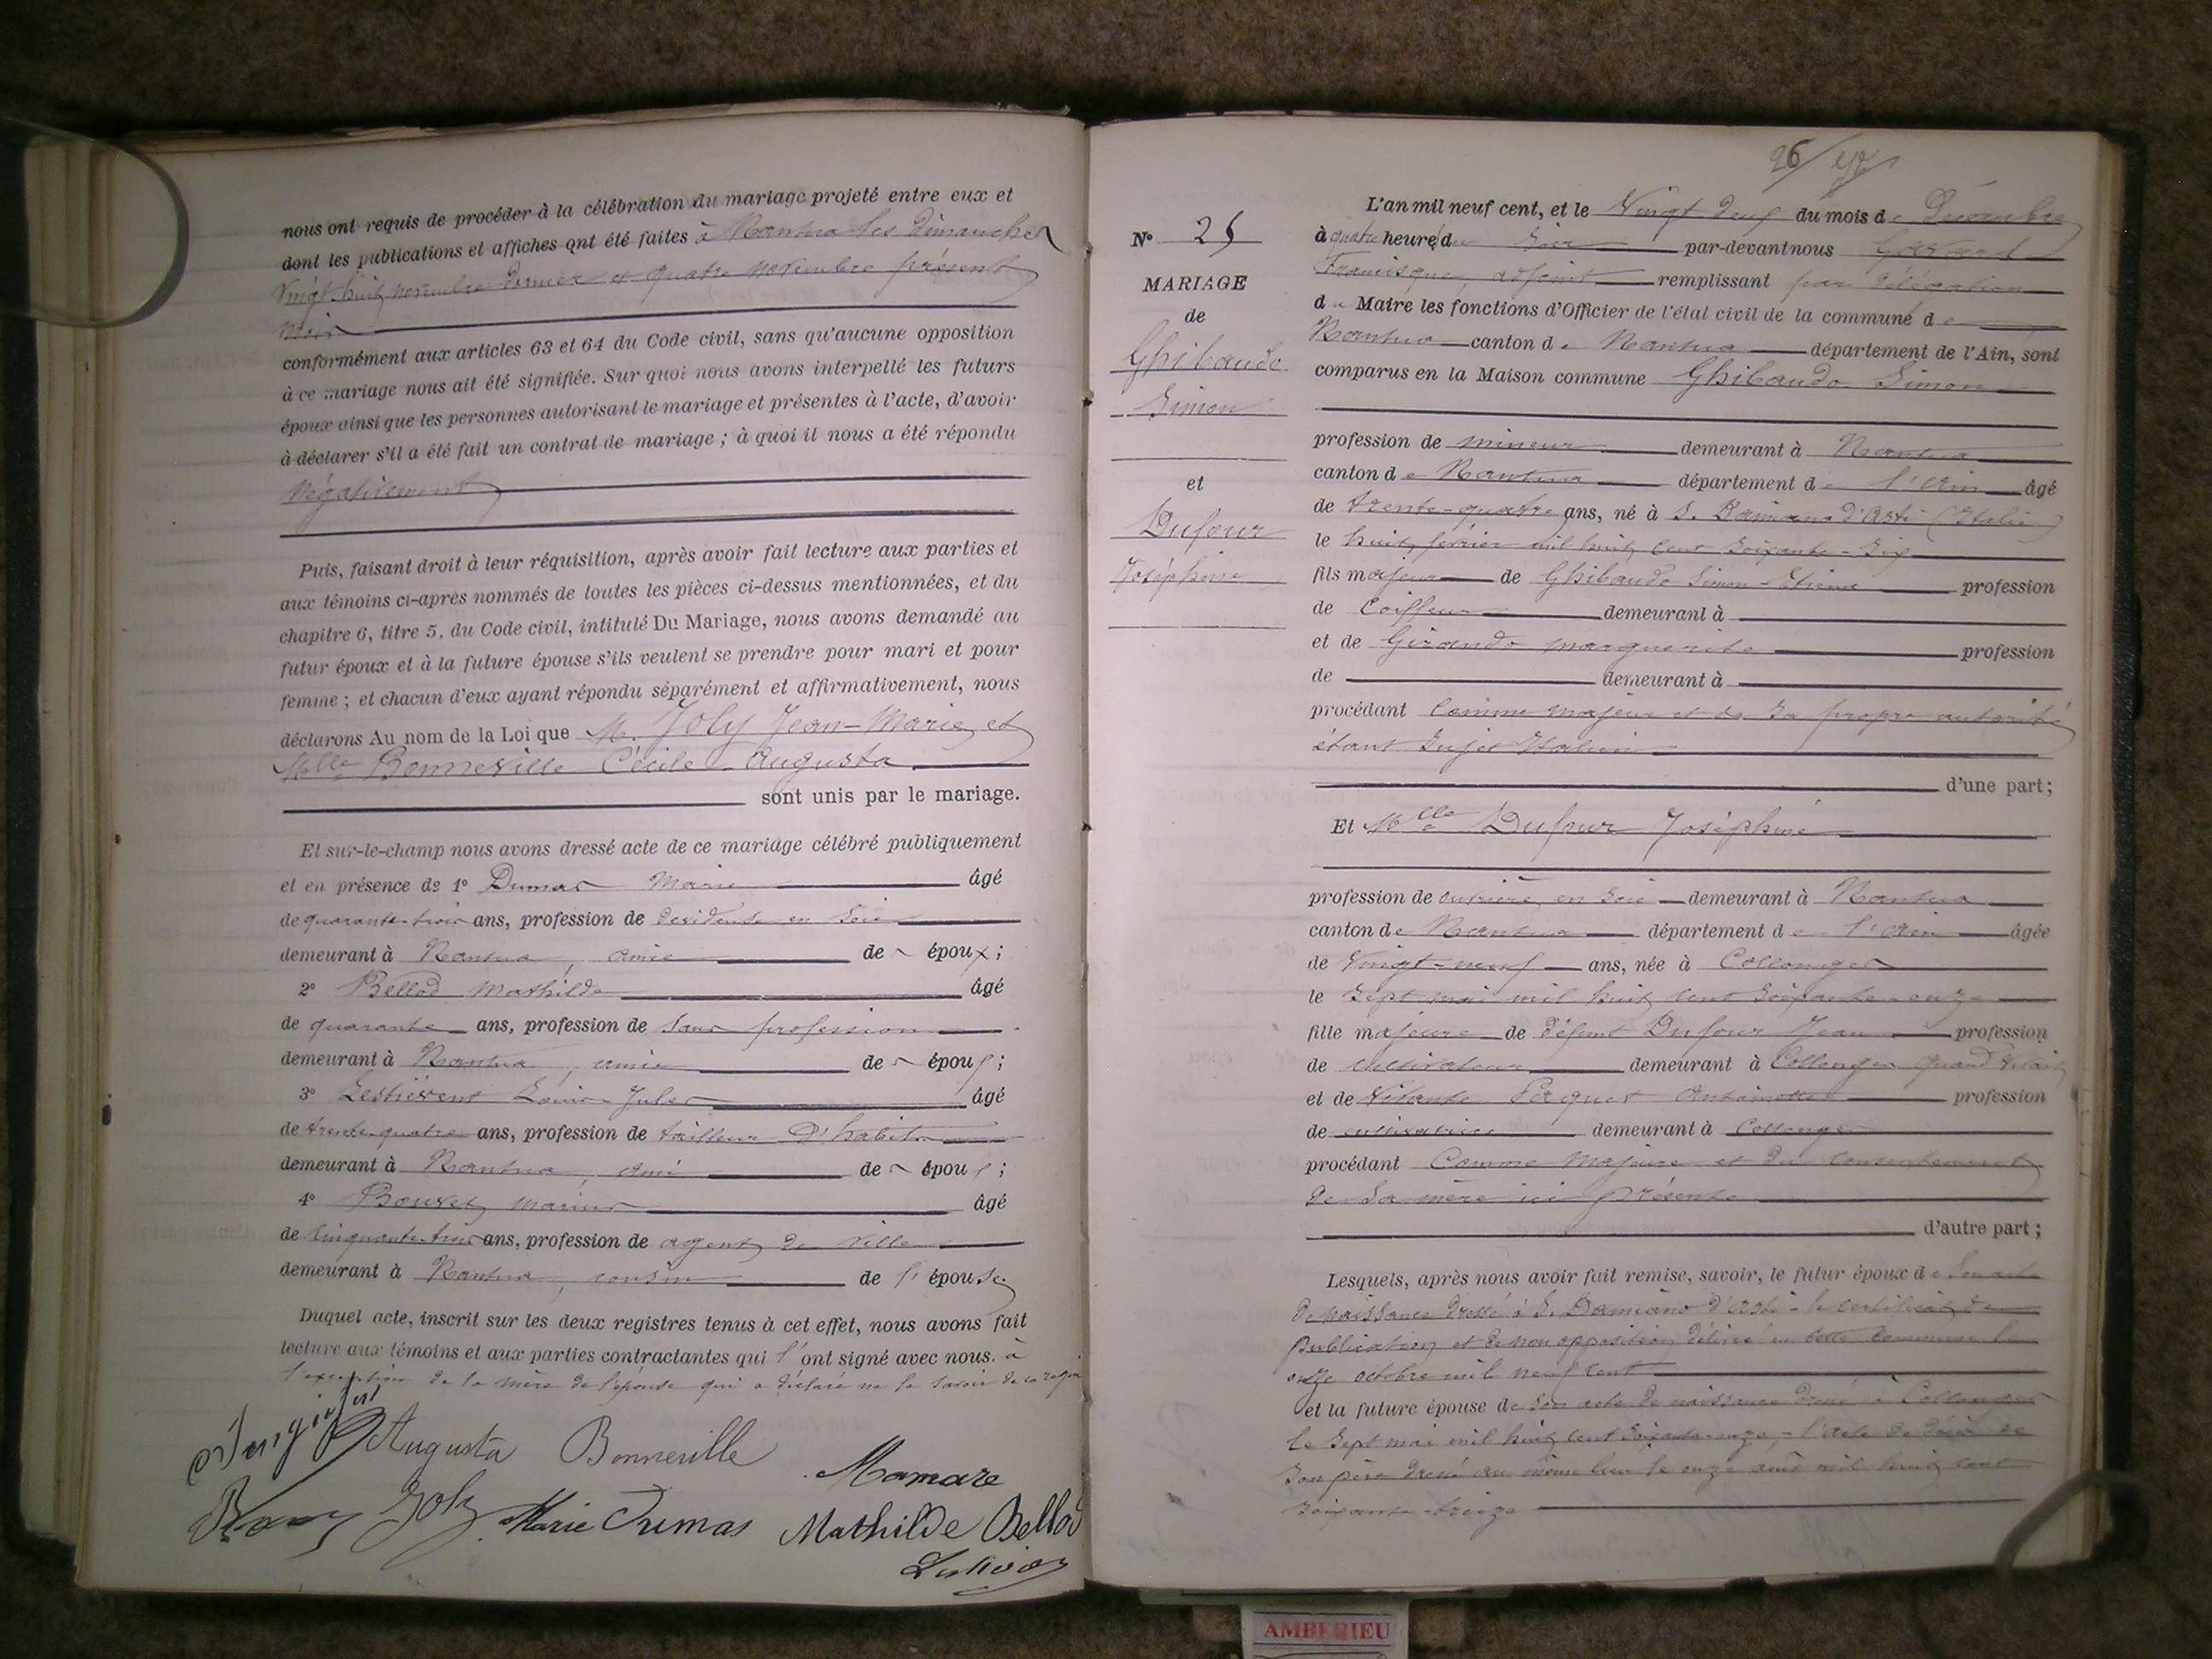 nous ont requis de procéder à la célébration du mariage projeté entre eux et
dont les publications et affiches ont été faites à Nantua les dimanches
Vingt huit novembre dernier et quatre novembre présent
mois
conformément aux articles 63 et 64 du Code civil, sans qu'aucune opposition
à ce mariage nous ait été signifiée. Sur quoi nous avons interpellé les futurs
époux ainsi que les personnes autorisant le mariage et présentes à l'acte, d'avoir
à déclarer s'il a été fait un contrat de mariage ; à quoi il nous a été répondu
négativement
Puis, faisant droit à leur réquisition, après avoir fait lecture aux parties et
aux témoins ci-après nommés de toutes les pièces ci-dessus mentionnées, et du
chapitre 6, titre 5, du Code civil, intitulé Du Mariage, nous avons demandé au
futur époux et à la future épouse s'ils veulent se prendre pour mari et pour
femme ; et chacun d'eux ayant répondu séparément et affirmativement, nous
déclarons Au nom de la Loi que M. Joly Jean-Marie et
Melle Bonneville Cécile Augusta
sont unis par le mariage.
Et sur-le-champ nous avons dressé acte de ce mariage célébré publiquement
et en présence de 1° Dumas Marie âgé
de quarante-trois ans, profession de devideuse en soie
demeurant à Nantua, amie de époux ;
2° Bellod Mathilde âgé
de quarante ans, profession de sans profession
demeurant à Nantua, amie de épou ;
3° Lestievent Louis-Jules âgé
de trente-quatre ans, profession de tailleur d'habits
demeurant à Nantua, ami de épou ;
4° Bouvet Marius âgé
de cinquante-trois ans, profession de agent de ville
demeurant à Nantua, cousin de l'épouse
Duquel acte, inscrit sur les deux registres tenus à cet effet, nous avons fait
lecture aux témoins et aux parties contractantes qui l'ont signé avec nous. à
l'exception de la mère de l'épouse qui a déclaré ne le savoir de ce requis
Augusta Bonneville
Mamare
Joly Marie Dumas Mathilde Bellod
26
N° 25
MARIAGE
de
Ghibaudo
Simon
et
Dufour
Joséphine
L'an mil neuf cent, et le Vingt deux du mois de Décembre
à quatre heure du soir par-devant nous Gavard
Francisque, adjoint remplissant par délégation
du Maire les fonctions d'Officier de l'état civil de la commune de
Nantua canton de Nantua département de l'Ain, sont
comparus en la Maison commune Ghibaudo Simon
profession de mineur demeurant à Nantua
canton de Nantua département de l'Ain âgé
de trente-quatre ans, né à S. Damiano d'Asti (Italie)
le huit février mil huit cent soixante-six
fils majeur de Ghibaudo Simon-Etienne profession
de Coiffeur demeurant à
et de Giraudo Marguerite profession
de demeurant à
procédant Comme majeur et de sa propre autorité
étant sujet Italien
d'une part;
Et Melle Dufour Joséphine
profession de ouvrière en soie demeurant à Nantua
canton de Nantua département de l'Ain âgée
de Vingt-neuf ans, née à Collonges
le sept mai mil huit cent soixante-onze
fille majeure de défunt Dufour Jean profession
de cultivateur demeurant à Collonges quand vivait
et de vivante Pacquet Antoinette profession
de cultivatrice demeurant à Collonges
procédant Comme majeure et du consentement
de sa mère ici présente
d'autre part ;
Lesquels, après nous avoir fait remise, savoir, le futur époux de son acte
de naissance dressé à S. Damiano d'Asti - le certificat de
publication et de non opposition délivré en cette commune le
onze octobre mil neuf cent
et la future épouse de son acte de naissance dressé à Collonges
le sept mai mil huit cent soixante-onze - l'acte de décès de
son père dressé au même lieu le onze août mil huit cent
soixante-treize
AMBERIEU